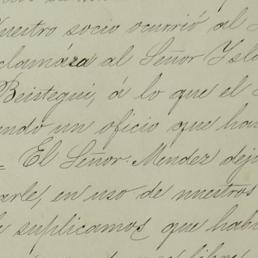 Nuestro socio ocurrió al
clamára al Señor Ysl
Beistegui, á lo que el
ando un oficio que ha
= El Señor Mendez dejo
arle, en uso de nuestros
suplicamos que hab